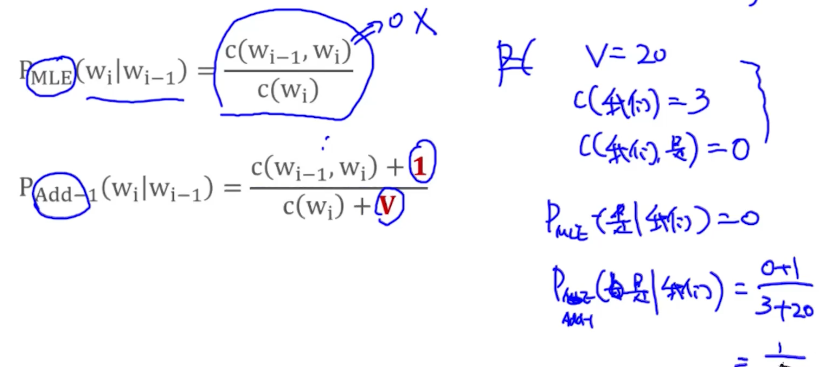 P_MLE(w_i|w_{i-1}) = c(w_{i-1}, w_i) / c(w_i)
→ 0 X
P_Add-1(w_i|w_{i-1}) = c(w_{i-1}, w_i) + 1 / c(w_i) + V
V = 20
c(我们) = 3
c(我们, 是) = 0
P_MLE(是|我们) = 0
P_Add-1(是|我们) = 0+1 / 3+20
= 1